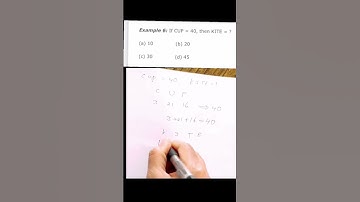 Example 6: If CUP = 40, then KITE = ?
(a) 10 (b) 20
(c) 30 (d) 45
CUP = 40
C U P
3 21 16 → 40
3+21+16 = 40